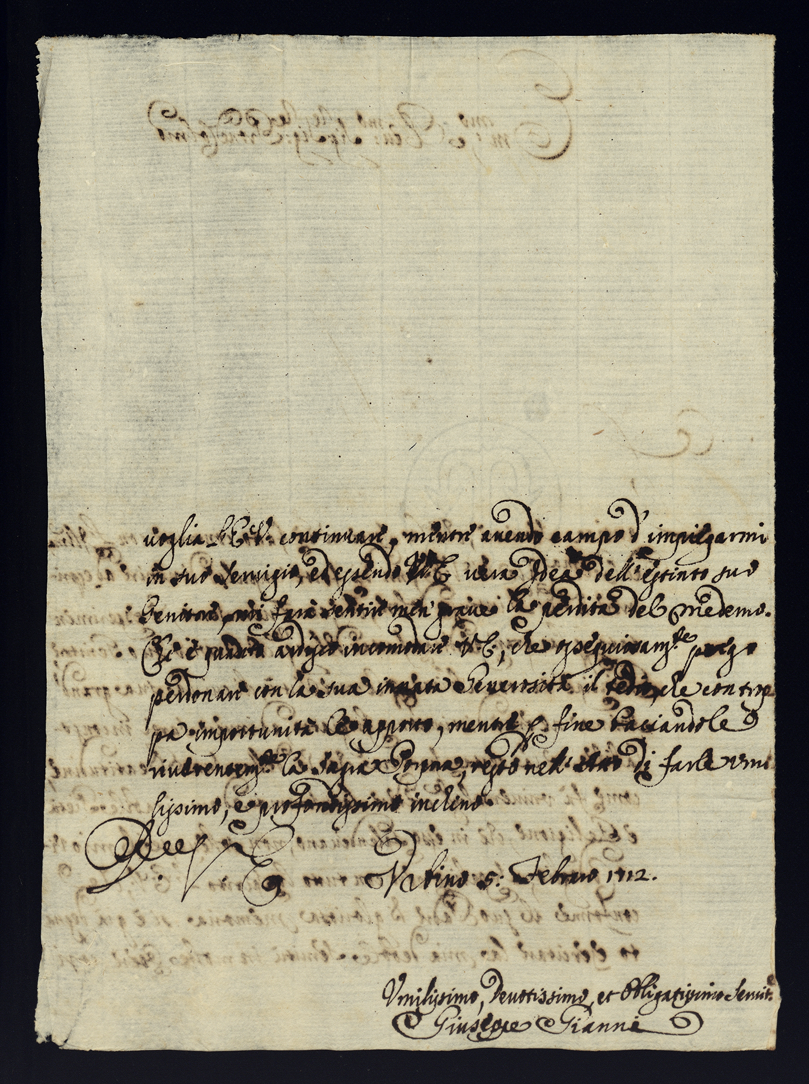 voglia l'E.V. continuare, mentre avendo campo d'impiegarmi
in suo servigio, ed essendo V.E. vera Idea dell'estinto suo
Genitore, mi farà sentire men grave la perdita del medemo.
è quanto ardisco incomodare V.E., che ossequiosamte prego
perdonare con la sua innata Generosità il tedio, che con trop
pa importunità le apporto, mentre p fine baciandole
riverentemte la Sagra Porpora, resto nell'atto di farle umi
lissimo, e profondissimo inchino
Urbino 5: Febraro 1712.
Vmilissimo, Devotissimo, et Obligatissimo Servit.
Giuseppe Gianni